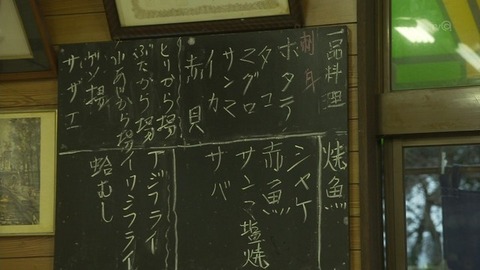 一品料理
刺身
ホタテ
タコ
マグロ
サンマ
イカ
赤貝
とりから揚
ぶたから揚
から揚
ゲソ揚
サザエ
焼魚
シャケ
赤魚
サンマ塩焼
サバ
アジフライ
イワシフライ
蛤むし